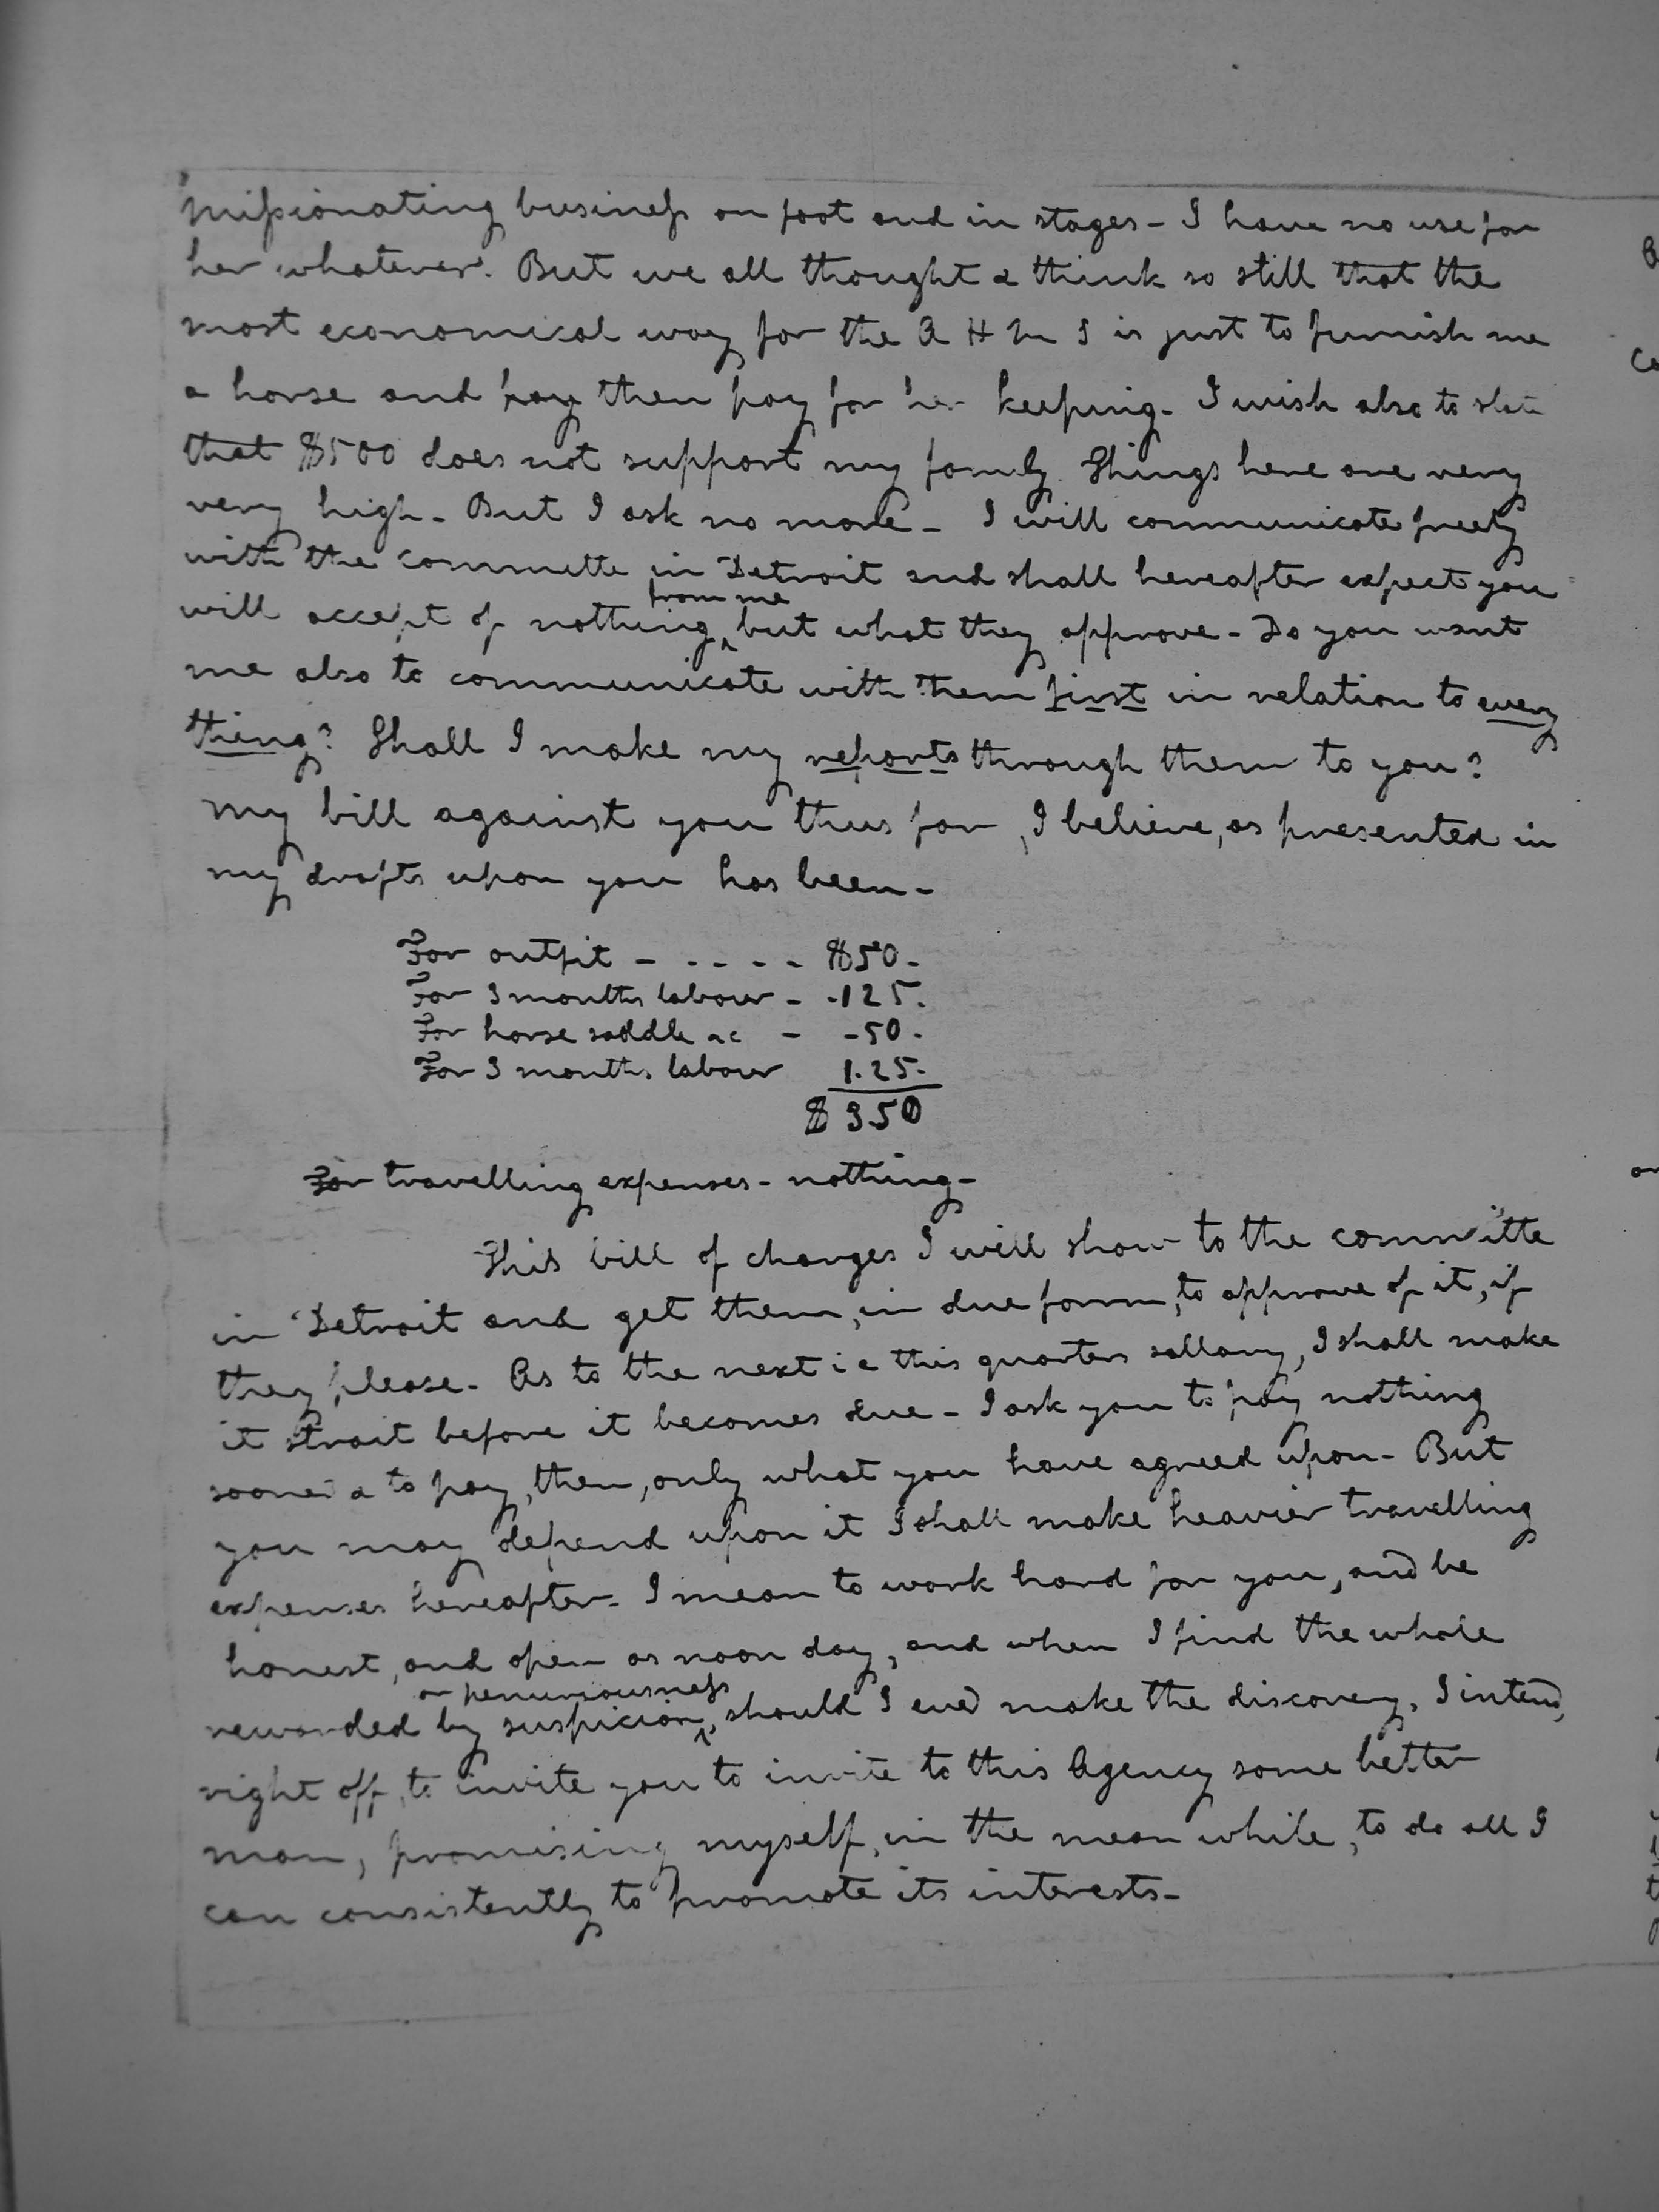 missionating business on foot and in stages - I have no use for
her whatever. But we all thought & think so still that the
most economical way for the A H M S is just to furnish me
a horse and pay then pay for her keeping. I wish also to state
that $500 does not support my family. Things here are very
very high - But I ask no more - I will communicate freely
with the committe in Detroit and shall hereafter expect you
from me
will accept of nothing, but what they approve - Do you want
me also to communicate with them first in relation to every
thing? Shall I make my reports through them to you?
My bill against you thus far, I believe, as presented in
my drafts upon you has been -
For outfit - - - - - $50 -
For 3 months labour - - 125.
For horse saddle &c - - 50 -
For 3 months labour 1.25.
$ 350
For travelling expenses - nothing -
This bill of charges I will show to the committe
in Detroit and get them, in due form, to approve of it, if
they please - As to the next i e this quarters sallary, I shall make
it strait before it becomes due - I ask you to pay nothing
sooner & to pay, then, only what you have agreed upon - But
you may depend upon it I shall make heavier travelling
expenses hereafter - I mean to work hard for you, and be
honest, and open as noon day, and when I find the whole
or penuriousness
rewarded by suspicion, should I ever make the discovery, I intend,
right off, to invite you to invite to this Agency some better
man, promising myself, in the mean while, to do all I
can consistently to promote its interests -